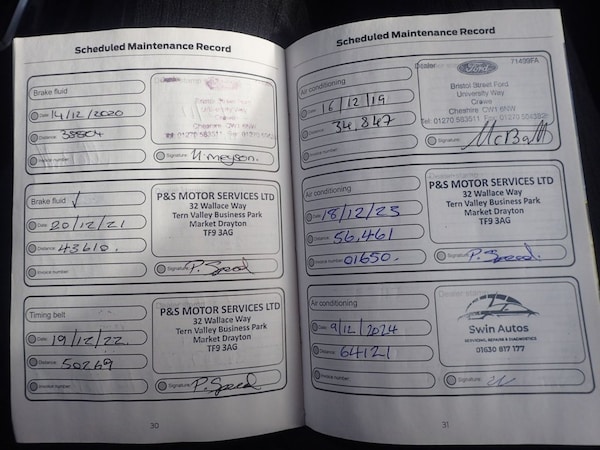 Scheduled Maintenance Record
Brake fluid
Date 14/12/2020
Distance 38804
Invoice number
Crewe
Cheshire CW1 6NW
Signature M. meyson.
Brake fluid ✓
Date 20/12/21
Distance 43610.
Invoice number
P&S MOTOR SERVICES LTD
32 Wallace Way
Tern Valley Business Park
Market Drayton
TF9 3AG
Signature P. Speed
Timing belt
Date 19/12/22.
Distance 50269
Invoice number
P&S MOTOR SERVICES LTD
32 Wallace Way
Tern Valley Business Park
Market Drayton
TF9 3AG
Signature P. Speed
30
Scheduled Maintenance Record
Air conditioning
Date 16/12/19
34,847
Invoice number
Dealer
Ford
71499FA
Bristol Street Ford
University Way
Crewe
Cheshire CW1 6NW
Signature
Air conditioning
Date 18/12/23
Distance 56,461
Invoice number 01650.
P&S MOTOR SERVICES LTD
32 Wallace Way
Tern Valley Business Park
Market Drayton
TF9 3AG
Signature P. Speed.
Air conditioning
Date 9/12/2024
Distance 64121
Invoice number
Swin Autos
SERVICING, REPAIRS & DIAGNOSTICS
01630 817 177
Signature
31